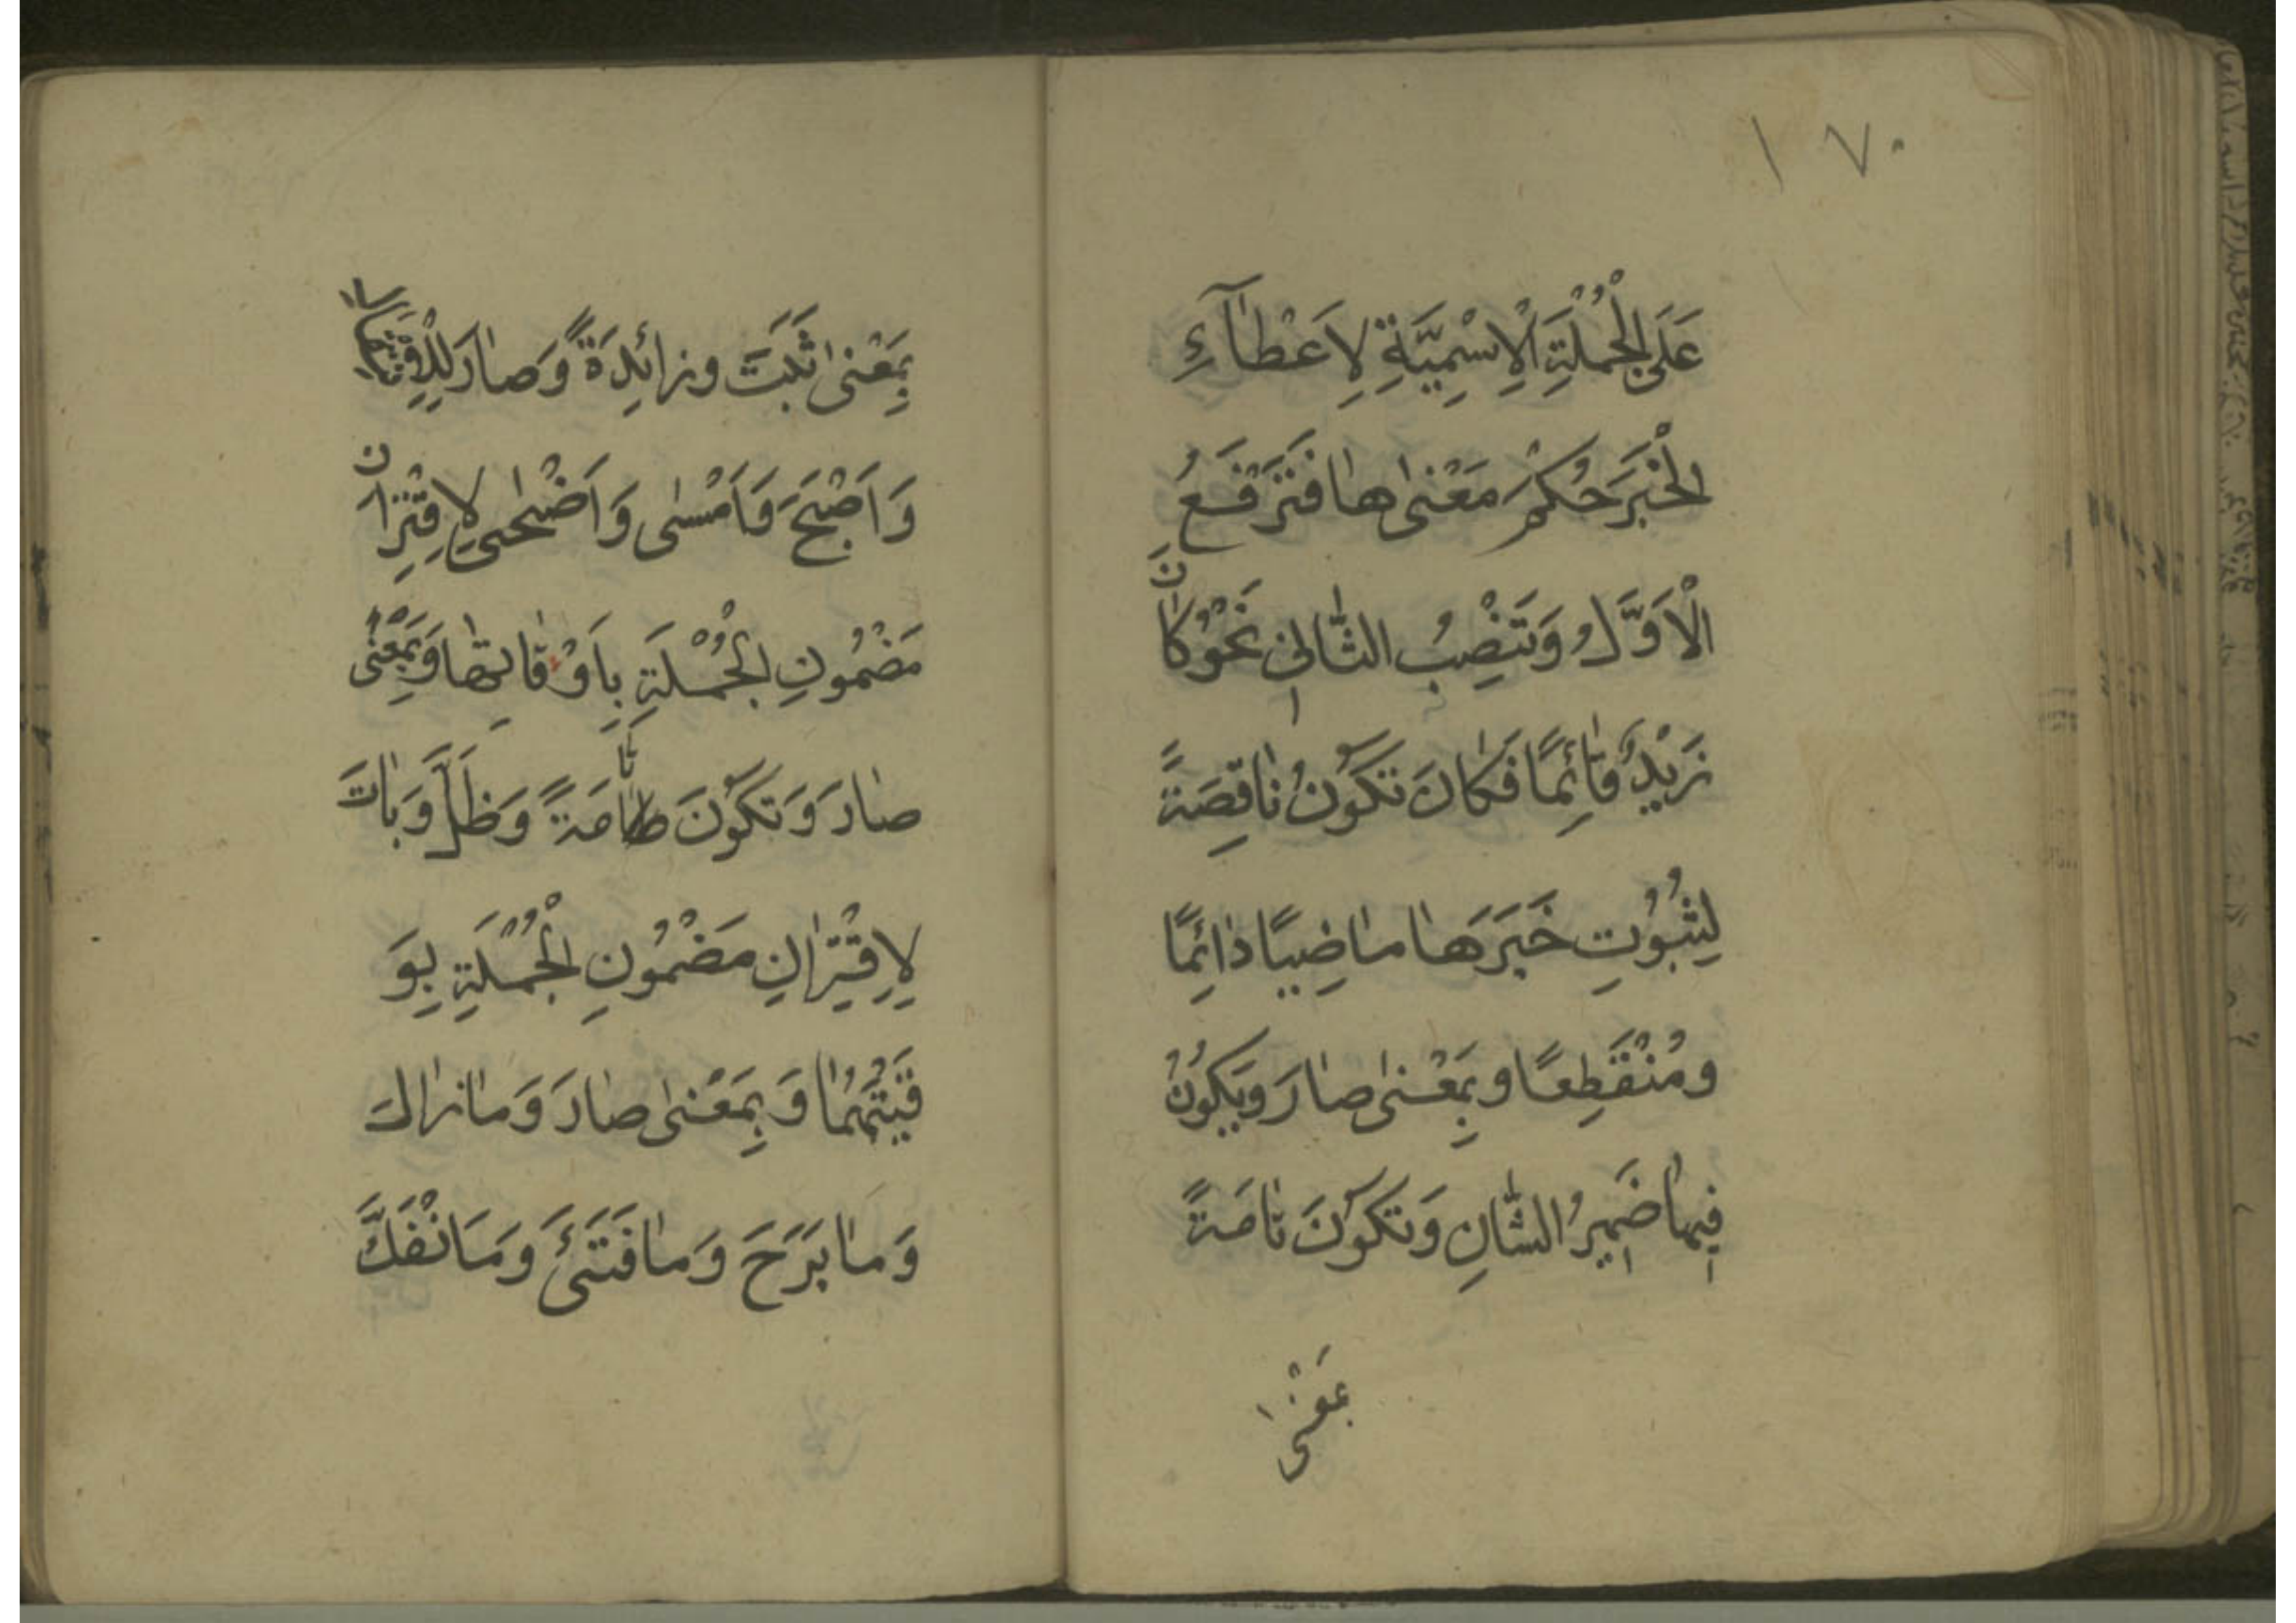 ١٧٠
عَلَى الْجُمْلَةِ الْاِسْمِيَّةِ لِاَعْطآءِ
الْخَبَرَ حُكْمَ مَعْنٰىهٰا فَتَرْفَعُ
الْاَوَّلُ وَتَنْصِبُ الثّٰانِى نَحْوُ كٰانَ
زَيْدٌ قٰائِمًا فَكٰانَ تَكُوْنُ نٰاقِصَةً
لِثُبُوْتِ خَبَرَهٰا مٰاضِيًا دٰائِمًا
ومُنْقَطِعًا وبِمَعْنٰى صٰارَ ويَكُوْنُ
فِيهٰا ضَمِيرُ الشّٰانِ وَتَكُوْنَ تٰامَةً
بمَعْنٰى
بِمَعْنٰى ثَبَتَ وزٰائِدَةً وَصٰارَ لِلْاِنْتِقٰالِ
وَاَصْبَحَ وَاَمْسٰى وَاَضْحٰى لِاِقْتِرٰانِ
مَضْمُونِ الْجُمْلَةِ بِاَوْقٰاتِهٰا وَبِمَعْنٰى
صٰارَ وَتَكُوْنَ تٰامَةً وَظَلَّ وَبٰاتَ
لِاِقْتِرٰانِ مَضْمُونِ الْجُمْلَةِ بِوَ
قْتَيْهُمٰا وَبِمَعْنٰى صٰارَ وَمٰازٰالَ
وَمٰا بَرَحَ وَمٰا فَتَئَ ومَانْفَكَّ